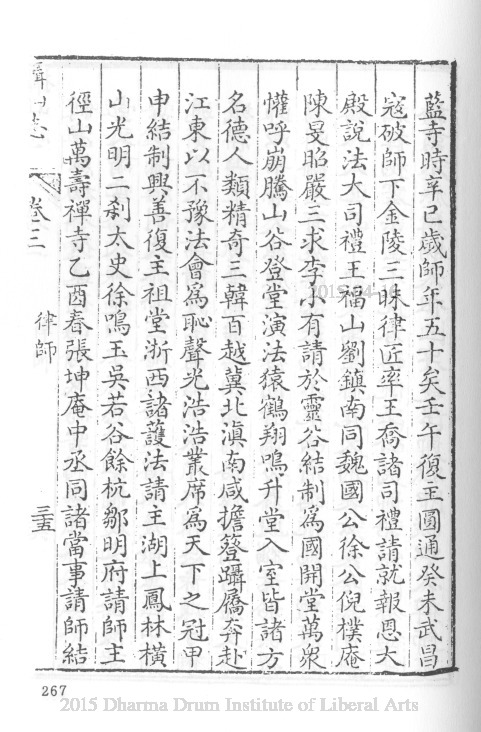 藍寺時辛巳歲師年五十矣壬午復主圓通癸未武昌
寇破師下金陵三昧律匠率王喬諸司禮請就報恩大
殿說法大司禮王福山劉鎮南同魏國公徐公倪樸庵
陳旻昭嚴三求李小有請於靈谷結制為國開堂萬衆
懽呼崩騰山谷登堂演法猿鶴翔鳴升堂入室皆諸方
名德人類精奇三韓百越冀北滇南咸擔簦躡屩奔赴
江東以不豫法會為恥聲光浩浩叢席為天下之冠甲
申結制興善復主祖堂浙西諸護法請主湖上鳳林橫
山光明二剎太史徐鳴玉吳若谷餘杭鄒明府請師主
徑山萬壽禪寺乙酉春張坤庵中丞同諸當事請師結
山志 卷三 律師 三五
267
2015 Dharma Drum Institute of Liberal Arts